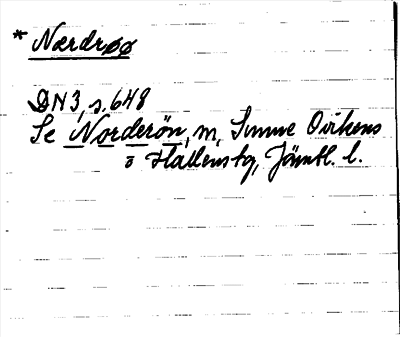 * Nærdrøø
DN3, s. 648
Se Norderön, m, Sunne Ovikens
o Hallenstg, Jämtl. l.